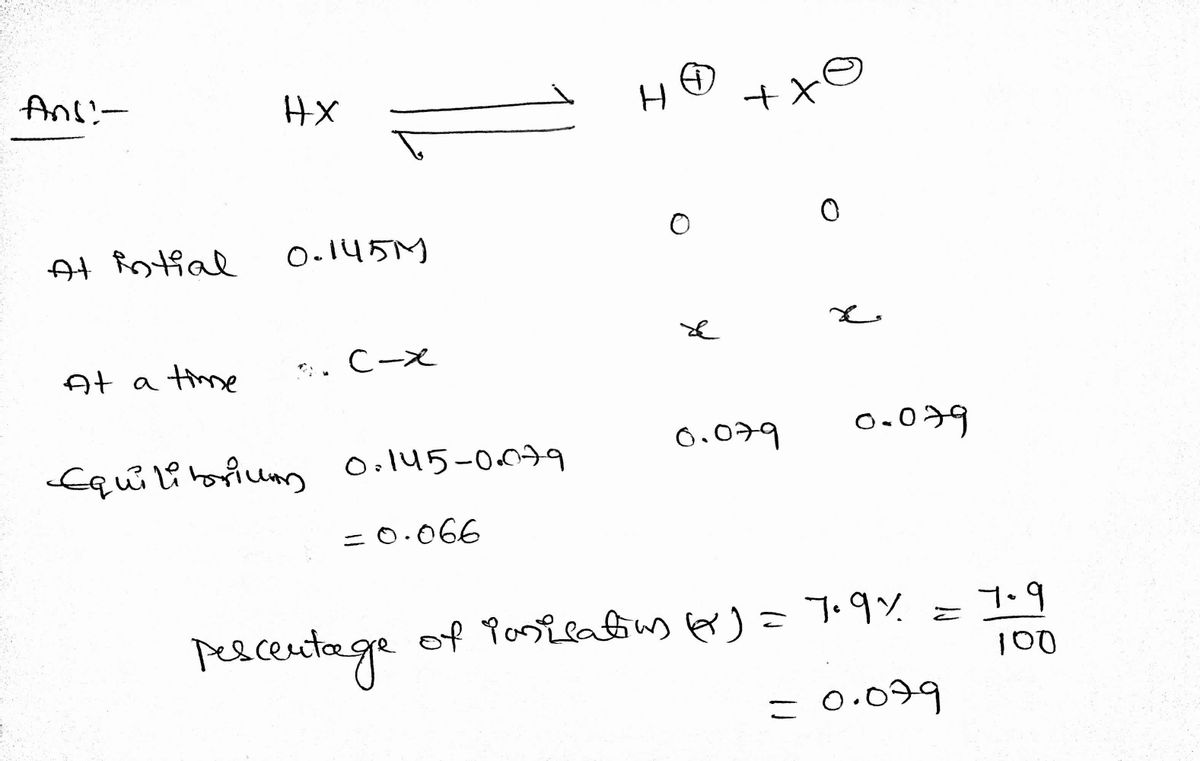 Ans:- HX ⇌ H⊕ + X⊖
At intial 0.145M 0 0
At a time C-x x x
Equilibrium 0.145-0.079 0.079 0.079
= 0.066
percentage of ionisation (α) = 7.9% = 7.9/100
= 0.079